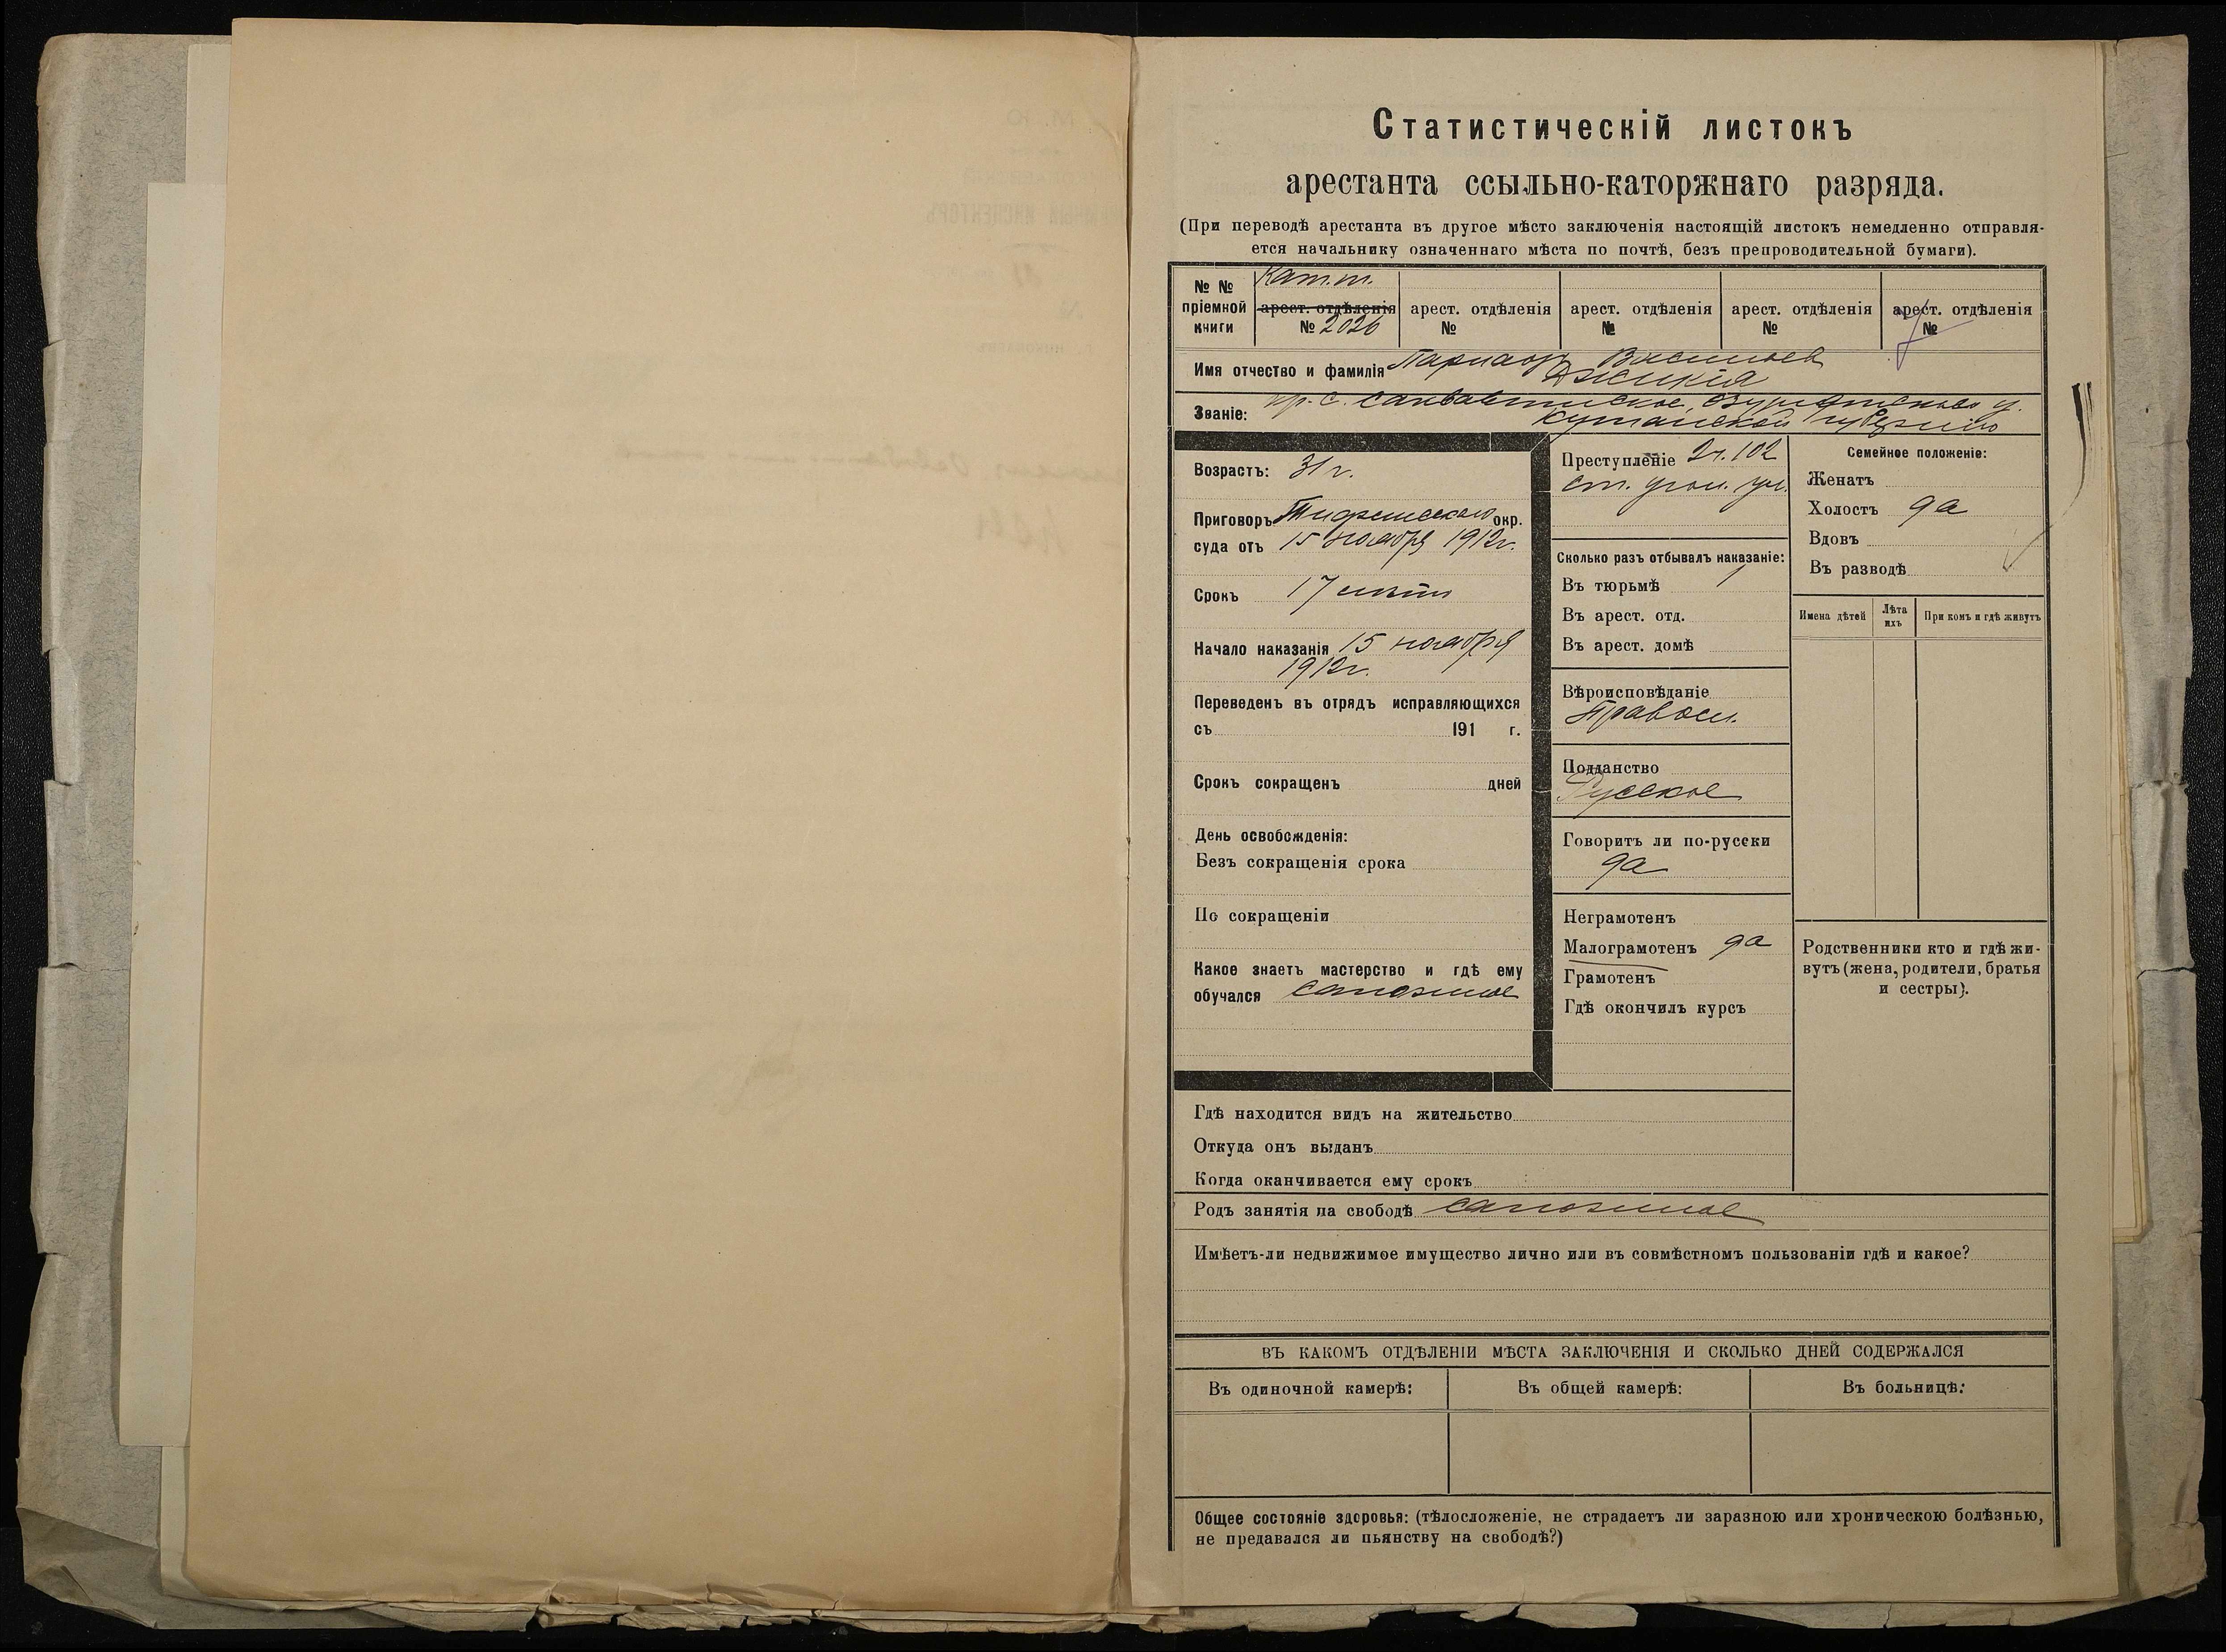 Статистическій листокъ
арестанта ссыльно-каторжнаго разряда.
(При переводѣ арестанта въ другое мѣсто заключенія настоящій листокъ немедленно отправля-
ется начальнику означеннаго мѣста по почтѣ, безъ препроводительной бумаги).
№ № пріемной книги
Кат. т.
арест. отдѣленія № 2026
арест. отдѣленія №
арест. отдѣленія №
арест. отдѣленія №
арест. отдѣленія №
Имя отчество и фамилія Васильевъ
Джикія
Званіе: кр. с. Озургетскаго у.
Кутаисской губерніи
Возрастъ: 31 г.
Приговоръ Тифлисскаго окр.
суда отъ 15 ноября 1912 г.
Срокъ 17 лѣтъ
Начало наказанія 15 ноября
1912 г.
Переведенъ въ отрядъ исправляющихся
съ 191 г.
Срокъ сокращенъ дней
День освобожденія:
Безъ сокращенія срока
По сокращеніи
Какое знаетъ мастерство и гдѣ ему
обучался сапожное
Преступленіе 2 ч. 102
ст. угол. ул.
Сколько разъ отбывалъ наказаніе:
Въ тюрьмѣ 1
Въ арест. отд.
Въ арест. домѣ
Вѣроисповѣданіе
Правосл.
Подданство
Русское
Говоритъ ли по-русски
да
Неграмотенъ
Малограмотенъ да
Грамотенъ
Гдѣ окончилъ курсъ
Семейное положеніе:
Женатъ
Холостъ да
Вдовъ
Въ разводѣ
Имена дѣтей
Лѣта ихъ
При комъ и гдѣ живутъ
Родственники кто и гдѣ жи-
вутъ (жена, родители, братья
и сестры).
Гдѣ находится видъ на жительство
Откуда онъ выданъ
Когда оканчивается ему срокъ
Родъ занятія на свободѣ сапожное
Имѣетъ-ли недвижимое имущество лично или въ совмѣстномъ пользованіи гдѣ и какое?
ВЪ КАКОМЪ ОТДѢЛЕНІИ МѢСТА ЗАКЛЮЧЕНІЯ И СКОЛЬКО ДНЕЙ СОДЕРЖАЛСЯ
Въ одиночной камерѣ:
Въ общей камерѣ:
Въ больницѣ:
Общее состояніе здоровья: (тѣлосложеніе, не страдаетъ ли заразною или хроническою болѣзнью,
не предавался ли пьянству на свободѣ?)